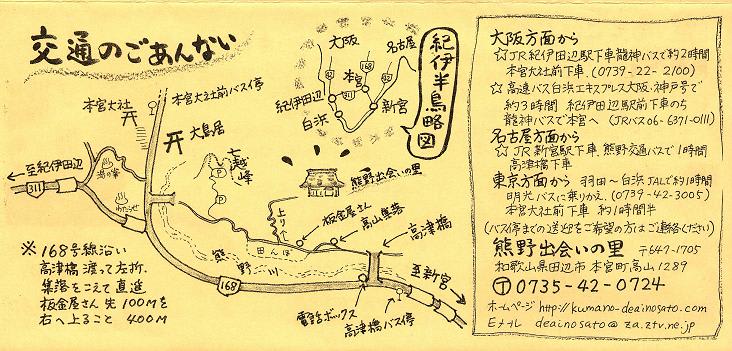 交通のごあんない
大阪
名古屋
本宮
168
42
311
紀伊田辺
新宮
白浜
紀伊半島略図
本宮大社
本宮大社前バス停
大鳥居
至紀伊田辺
311
湯の峯
わたらせ
七越峰
P
P
熊野出会いの里
上り
板金屋さん
高山集落
田んぼ
熊野川
高津橋
168
至新宮
電話ボックス
高津橋バス停
※168号線沿い
高津橋渡って左折.
集落をこえて直進
板金屋さん先100Mを
右へ上ること 400M
大阪方面から
☆JR紀伊田辺駅下車龍神バスで約2時間
本宮大社前下車. (0739-22-2100)
☆高速バス白浜エキスプレス大阪.神戸号で
約3時間 紀伊田辺駅前下車のち
龍神バスで本宮へ (JRバス06-6371-0111)
名古屋方面から
☆JR新宮駅下車.熊野交通バスで1時間
高津橋下車
東京方面から 羽田～白浜JALで約1時間
明光バスに乗りかえ. (0739-42-3005)
本宮大社前下車 約1時間半
(バス停までの送迎をご希望の方はご連絡ください)
熊野出会いの里 〒647-1705
和歌山県田辺市本宮町高山1289
Ⓣ0735-42-0724
ホームページ http://kumano-deainosato.com
Eメール deainosato@za.ztv.ne.jp